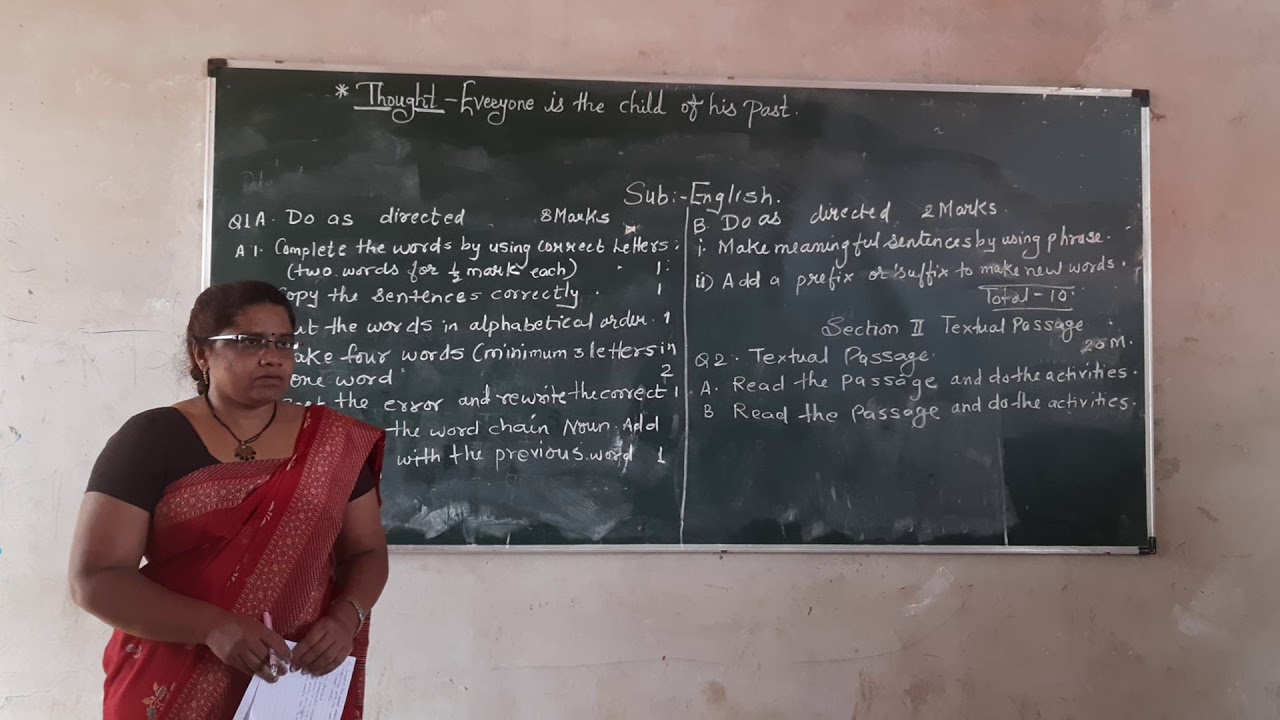 * Thought - Everyone is the child of his past.
Sub:- English.
Q1 A. Do as directed 8 Marks
A 1. Complete the words by using correct letters.
(two words for ½ mark each) 1
Copy the sentences correctly. 1
the words in alphabetical order. 1
four words (minimum 3 letters in
one word 2
the error and rewrite the correct 1
the word chain Noun. Add
with the previous word 1
B. Do as directed 2 Marks.
i. Make meaningful sentences by using phrase.
ii) Add a prefix or suffix to make new words.
Total - 10.
Section II Textual Passage
20 M.
Q2. Textual Passage.
A. Read the passage and do the activities.
B Read the Passage and do the activities.